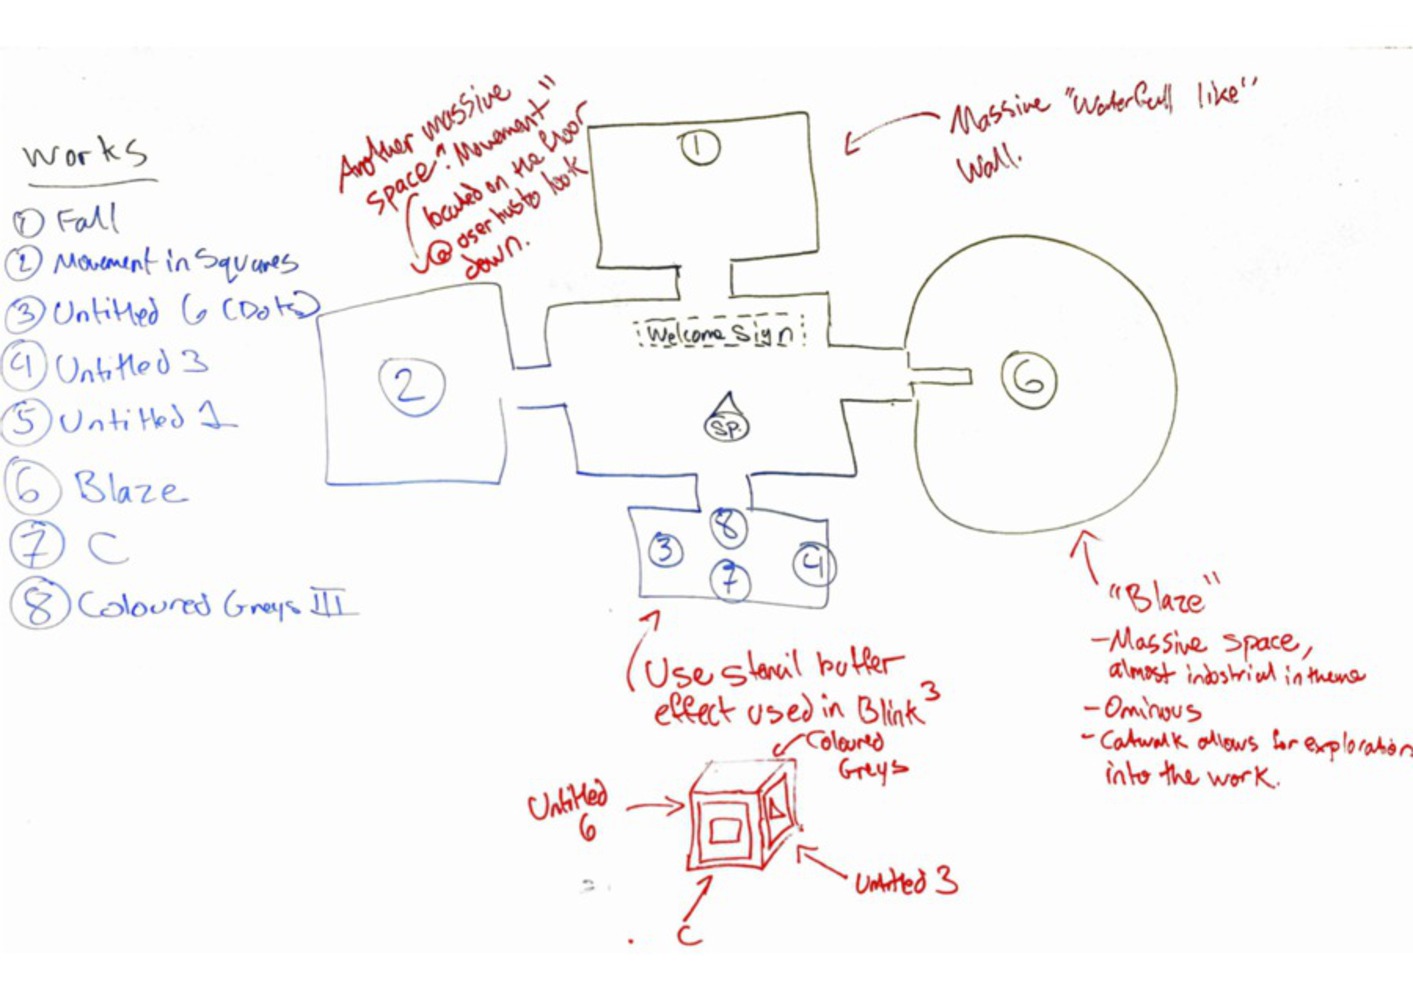 Works
① Fall
② Movement in Squares
③ Untitled 6 (Dots)
④ Untitled 3
⑤ Untitled 1
⑥ Blaze
⑦ C
⑧ Coloured Greys III
Another massive
space. "Movement"
located on the floor
user has to look
down.
1
Massive "Waterfall like"
Wall.
Welcome Sign
2
SP.
6
3
8
7
4
"Blaze"
- Massive space,
almost industrial in theme
- Ominous
- Catwalk allows for exploration
into the work.
Use stencil buffer
effect used in Blink³
Coloured
Greys
Untitled
6
Untitled 3
C